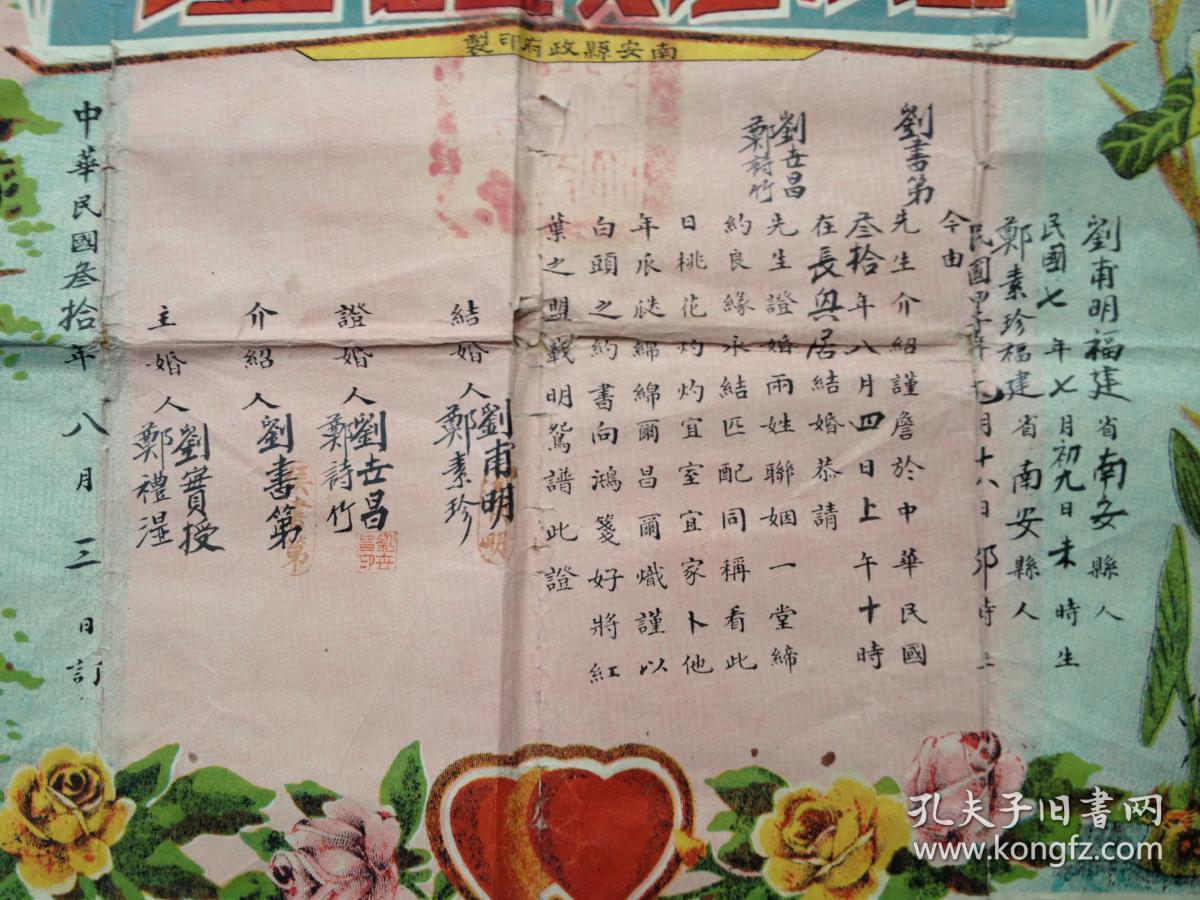 南安縣政府印製
劉甫明福建省南安縣人
民國七年七月初九日未時生
鄭素珍福建省南安縣人
民國 年 月十八日卯時生
今由
劉書第先生介紹謹詹於中華民國
叁拾年八月四日上午十時
在長與居結婚恭請
劉世昌
鄭詩竹
先生證婚兩姓聯姻一堂締
約良緣永結匹配同稱看此
日桃花灼灼宜室宜家卜他
年瓜瓞綿綿爾昌爾熾謹以
白頭之約書向鴻箋好將紅
葉之盟載明鴛譜此證
結婚人
劉甫明
鄭素珍
證婚人
劉世昌
鄭詩竹
介紹人
劉書第
主婚人
劉實授
鄭禮湿
中華民國叁拾年八月三日訂
劉世昌印
孔夫子旧书网
www.kongfz.com